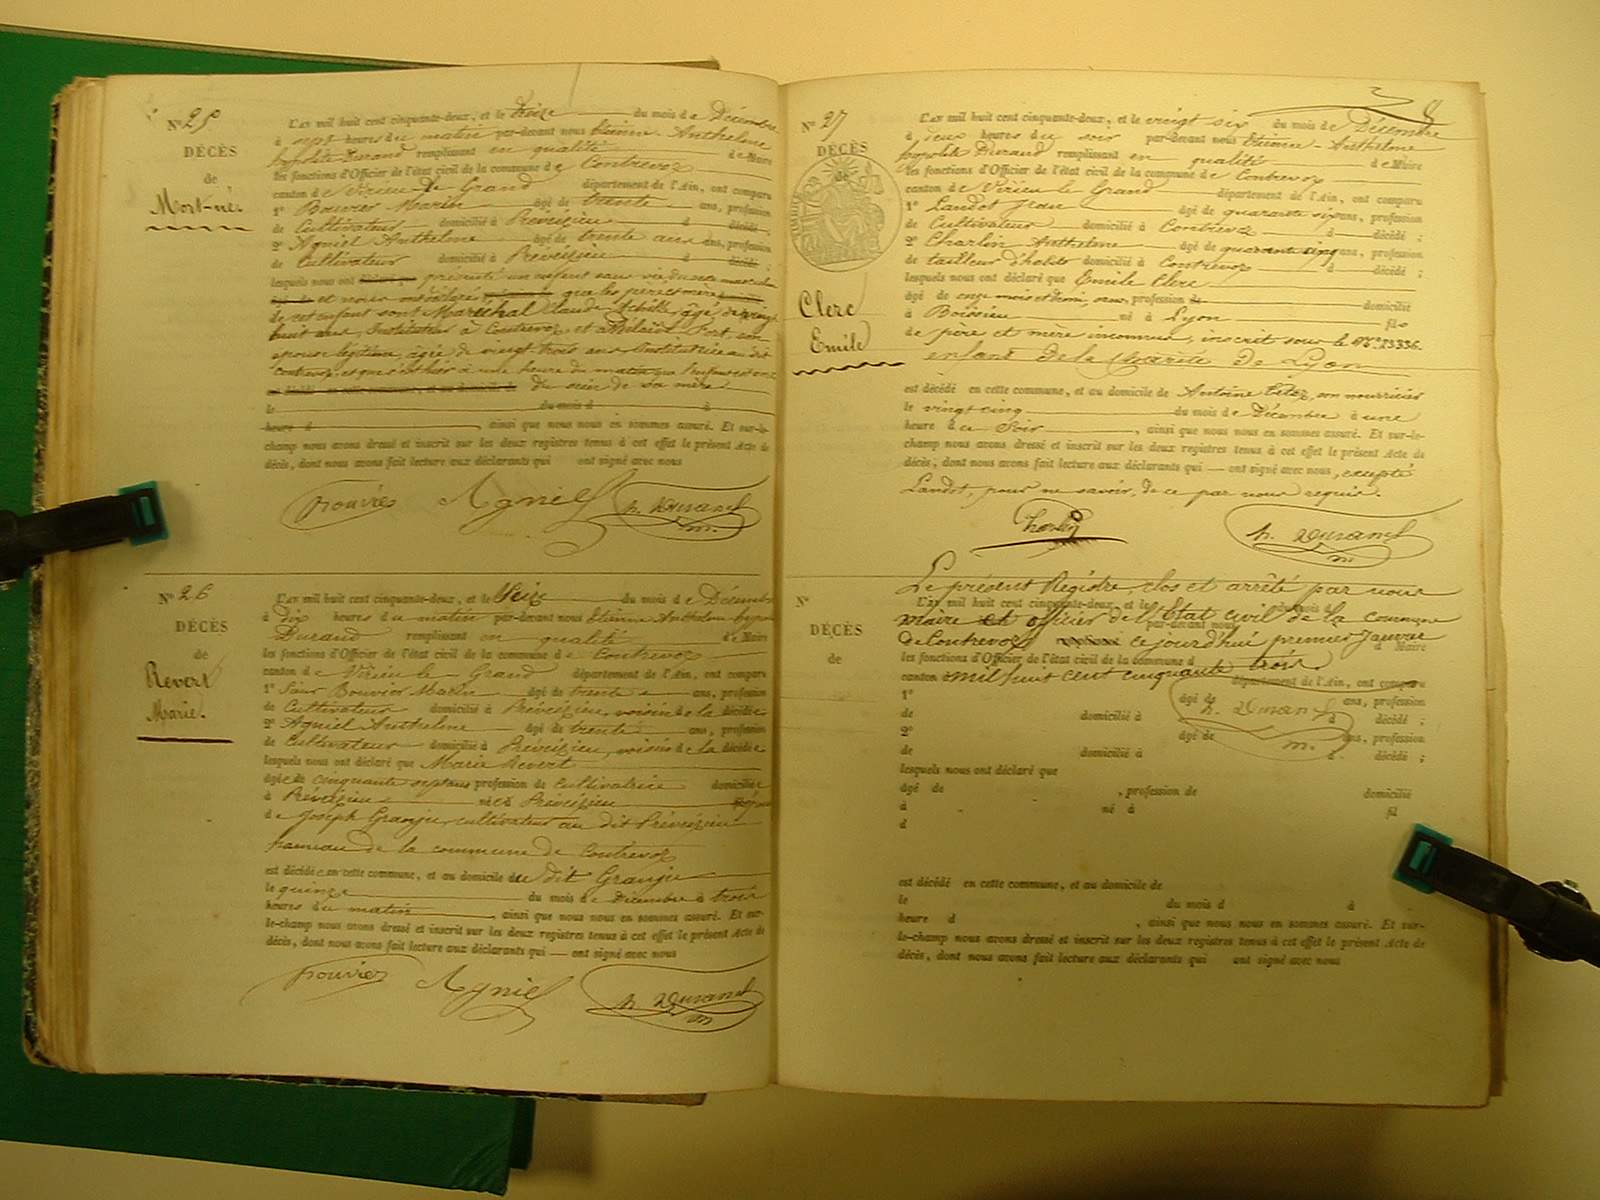 N° 25
DÉCÈS
de
Mort-né.
L'an mil huit cent cinquante-deux, et le treize du mois de Décembre
à sept heures du matin par-devant nous Etienne Anthelme
hypolite Durand remplissant en qualité de Maire
les fonctions d'Officier de l'état civil de la commune de Contrevoz
canton de Virieu-le-Grand département de l'Ain, ont comparu
1° Bouvier Marin âgé de trente ans, profession
de Cultivateur domicilié à Preveyzieu d décédé ;
2° Agniel Anthelme âgé de trente ans ans, profession
de Cultivateur domicilié à Preveyzieu d décédé ;
lesquels nous ont présenté un enfant sans vie du sexe masculin
et nous ont déclaré que les père et mère
de cet enfant sont Maréchal Claude Achille, âgé de vingt
huit ans, Instituteur à Contrevoz, et Fort, son
épouse légitime, âgée de vingt trois ans, Institutrice au dit
Contrevoz, et que c'est hier à une heure du matin que l'enfant est
du sein de sa mère
le du mois d à
heure d , ainsi que nous nous en sommes assuré. Et sur-le-
champ nous avons dressé et inscrit sur les deux registres tenus à cet effet le présent Acte de
décès, dont nous avons fait lecture aux déclarants qui ont signé avec nous
Bouvier Agniel h. Durand
m.
N° 26
DÉCÈS
de
Revert
Marie.
L'an mil huit cent cinquante-deux, et le Seize du mois de Décembre
à Dix heures du matin par-devant nous Etienne Anthelme hypolite
Durand remplissant en qualité de Maire
les fonctions d'Officier de l'état civil de la commune de Contrevoz
canton de Virieu le Grand département de l'Ain, ont comparu
1° Sieur Bouvier Marin âgé de trente ans, profession
de Cultivateur domicilié à Préveyzieu, voisin de la décédée
2° Agniel Anthelme âgé de trente ans, profession
de Cultivateur domicilié à Préveyzieu, voisin de la décédée
lesquels nous ont déclaré que Marie Revert
âgée de cinquante sept ans profession de cultivatrice domiciliée
à Préveyzieu née à Préveyzieu
de Joseph Granju, cultivateur au dit Préveyzieu
hameau de la commune de Contrevoz
est décédée en cette commune, et au domicile du dit Granju
le quinze du mois de Décembre à trois
heures du matin , ainsi que nous nous en sommes assuré. Et sur-
le-champ nous avons dressé et inscrit sur les deux registres tenus à cet effet le présent Acte de
décès, dont nous avons fait lecture aux déclarants qui — ont signé avec nous
Bouvier Agniel h. Durand
m
8
N° 27
DÉCÈS
de
Clerc
Emile
L'an mil huit cent cinquante-deux, et le vingt six du mois de Décembre
à deux heures du soir par-devant nous Etienne-Anthelme
hypolite Durand remplissant en qualité de Maire
les fonctions d'Officier de l'état civil de la commune de Contrevoz
canton de Virieu le Grand département de l'Ain, ont comparu
1° Landot Jean âgé de quarante six ans, profession
de Cultivateur domicilié à Contrevoz d décédé ;
2° Charlin Anthelme âgé de quarante cinq ans, profession
de tailleur d'habits domicilié à Contrevoz d décédé ;
lesquels nous ont déclaré que Emile Clerc
âgé de onze mois et demi, sans profession de domicilié
à Boissieu né à Lyon fils
de père et mère inconnus, inscrit sous le N° 23336.
enfant de la Charité de Lyon
est décédé en cette commune, et au domicile de Antoine , son nourricier
le vingt cinq du mois de Décembre à une
heure du Soir , ainsi que nous nous en sommes assuré. Et sur-le-
champ nous avons dressé et inscrit sur les deux registres tenus à cet effet le présent Acte de
décès, dont nous avons fait lecture aux déclarants qui — ont signé avec nous, excepté
Landot, pour ne savoir, de ce par nous requis.
Charlin h. Durand
m
Le présent Registre, clos et arrêté par nous
maire et officier de l'Etat civil de la commune
de Contrevoz ce jourd'hui premier Janvier
mil huit cent cinquante trois
h. Durand
m.
N°
DÉCÈS
de
L'an mil huit cent cinquante-deux, et le du mois d
par-devant nous
d Maire
les fonctions d'Officier de l'état civil de la commune d
canton d département de l'Ain, ont comparu
1° âgé de ans, profession
de domicilié à d décédé ;
2° âgé de ans, profession
de domicilié à d décédé ;
lesquels nous ont déclaré que
âgé de , profession de domicilié
à né à fil
d
est décédé en cette commune, et au domicile de
le du mois d à
heure d , ainsi que nous nous en sommes assuré. Et sur-
le-champ nous avons dressé et inscrit sur les deux registres tenus à cet effet le présent Acte de
décès, dont nous avons fait lecture aux déclarants qui ont signé avec nous